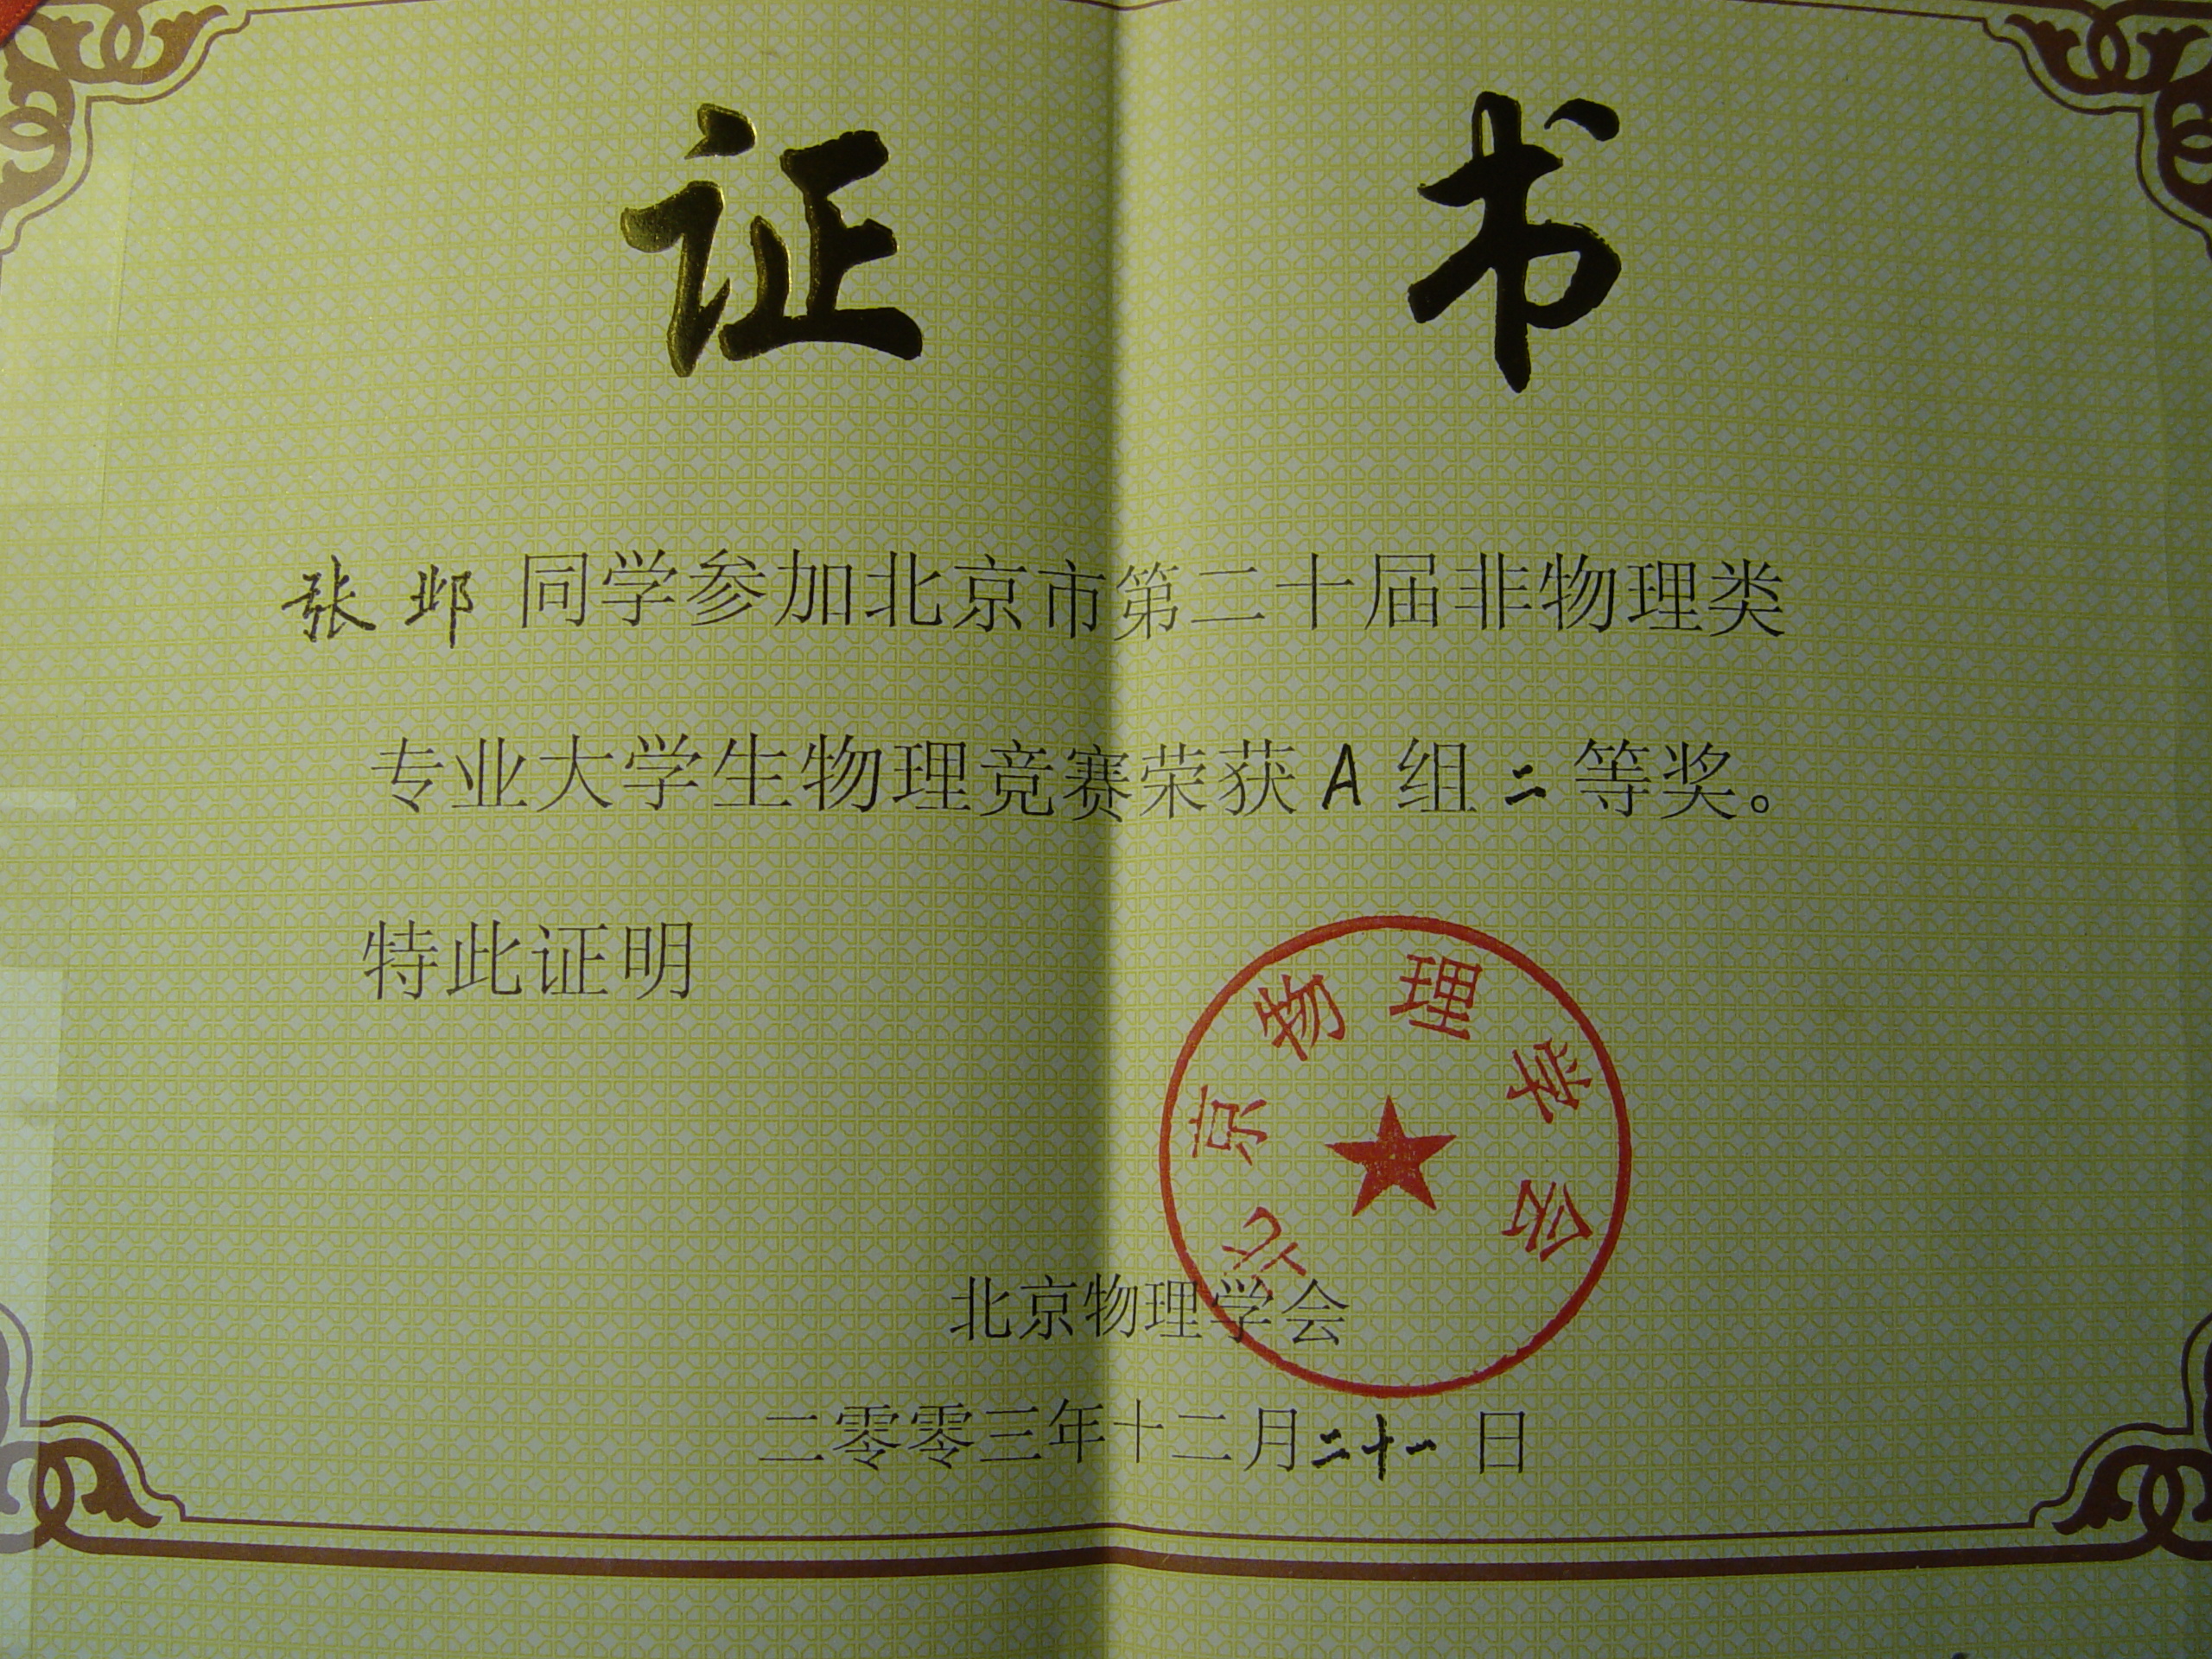 证书
张邺同学参加北京市第二十届非物理类
专业大学生物理竞赛荣获A组二等奖。
特此证明
北京物理学会
北京物理学会
二零零三年十二月二十一日